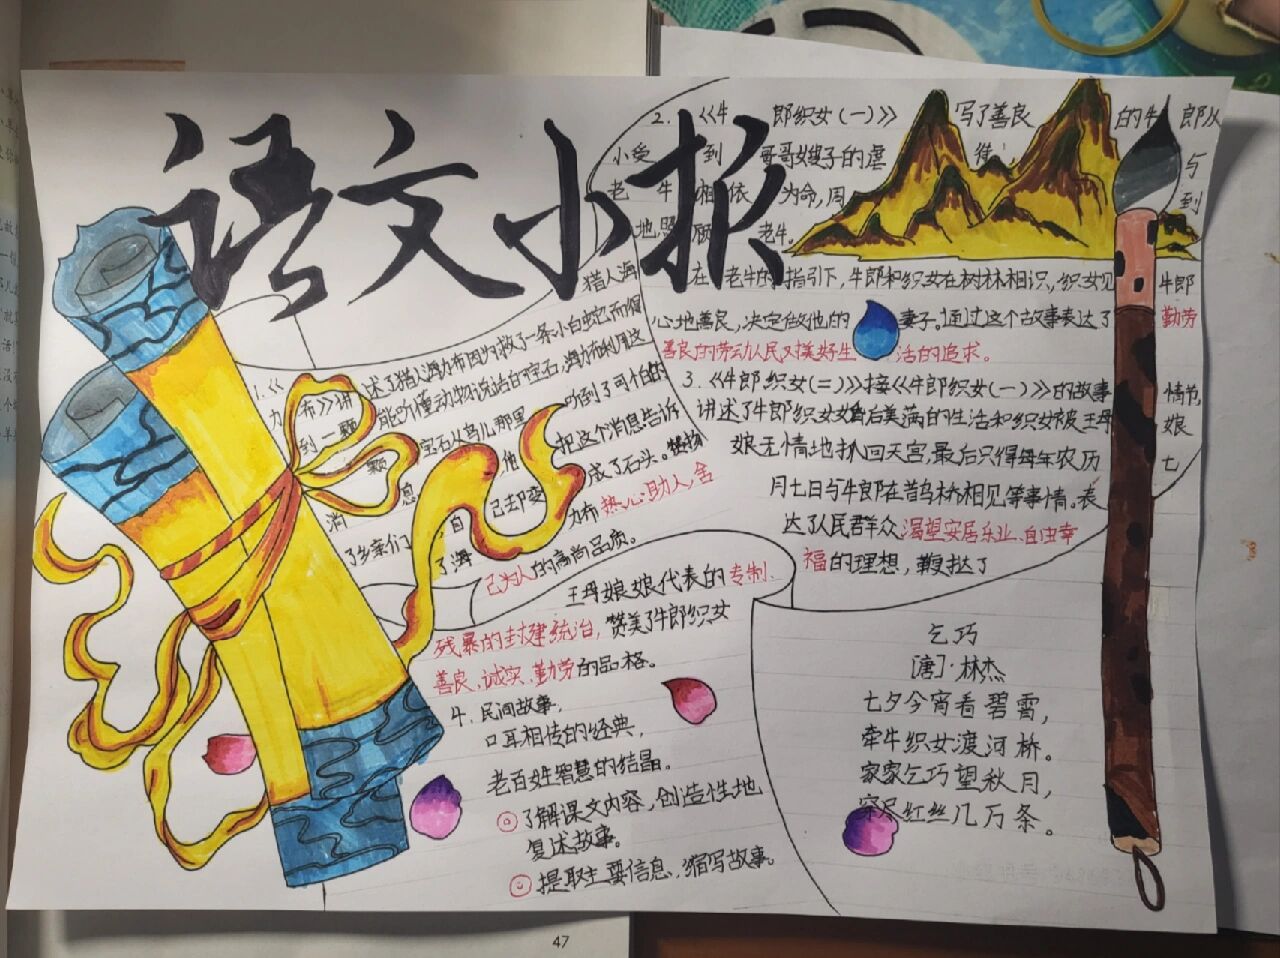 语文小报
1.《
猎人海
力布》讲述了猎人海力布因为救了一条小白蛇而得
到一颗能听懂动物说话的宝石,海力布利用这
颗宝石从鸟儿那里听到了可怕的
消息,他把这个消息告诉
了乡亲们,自己却变成了石头。赞扬
了海力布热心助人,舍
己为人的高尚品质。
2.《牛郎织女(一)》写了善良的牛郎从
小受到哥哥嫂子的虐待,与
老牛相依为命,周到
地照顾老牛。
在老牛的指引下,牛郎和织女在树林相识,织女见牛郎
心地善良,决定做他的妻子。通过这个故事表达了勤劳
善良的劳动人民对美好生活的追求。
3.《牛郎织女(二)》接《牛郎织女(一)》的故事情节,
讲述了牛郎织女婚后美满的生活和织女被王母娘
娘无情地抓回天宫,最后只得每年农历七
月七日与牛郎在鹊桥相见等事情。表
达了人民群众渴望安居乐业、自由幸
福的理想,鞭挞了
王母娘娘代表的专制、
残暴的封建统治,赞美了牛郎织女
善良、诚实、勤劳的品格。
4.民间故事,
口耳相传的经典,
老百姓智慧的结晶。
◎了解课文内容,创造性地
复述故事。
◎提取主要信息,缩写故事。
乞巧
[唐]·林杰
七夕今宵看碧霄,
牵牛织女渡河桥。
家家乞巧望秋月,
穿尽红丝几万条。
47